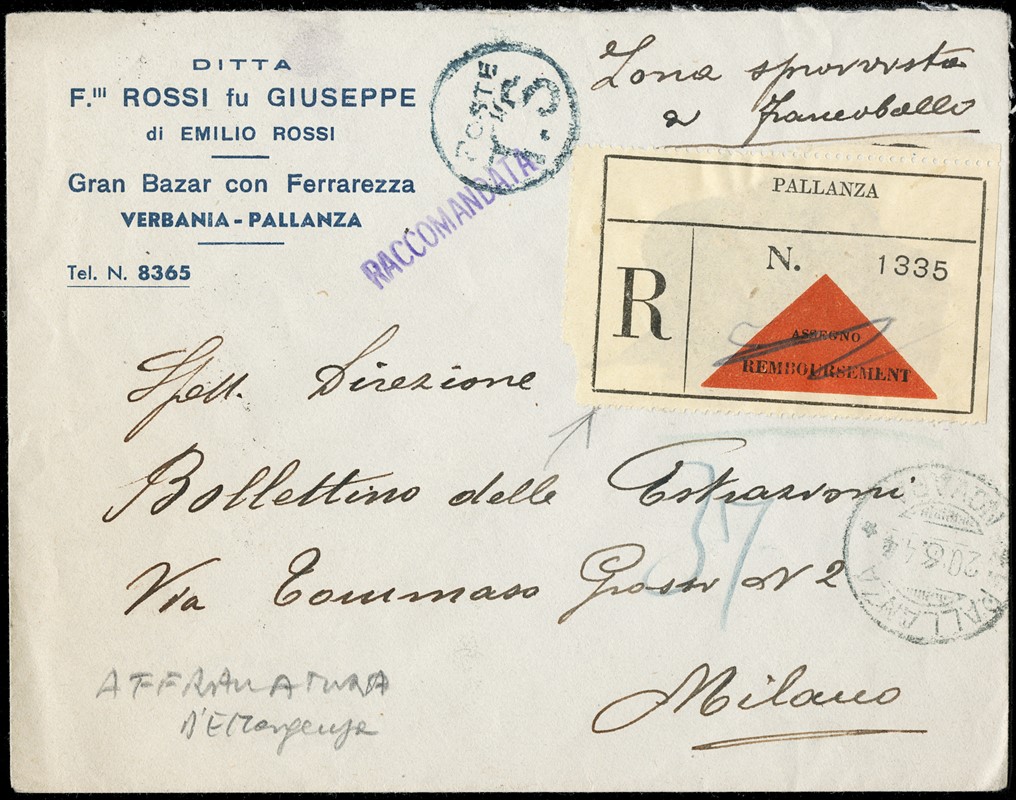 DITTA
F.lli ROSSI fu GIUSEPPE
di EMILIO ROSSI
Gran Bazar con Ferrarezza
VERBANIA - PALLANZA
Tel. N. 8365
POSTE
RACCOMANDATA
Zona sprovvista
a francobolli
PALLANZA
R
N. 1335
ASSEGNO
REMBOURSEMENT
Spett. Direzione
Bollettino delle Estrazioni
Via Tommaso Grossi N 2
Milano
37
PALLANZA
20.6.44
AFFRANCATURA
D'Emergenza